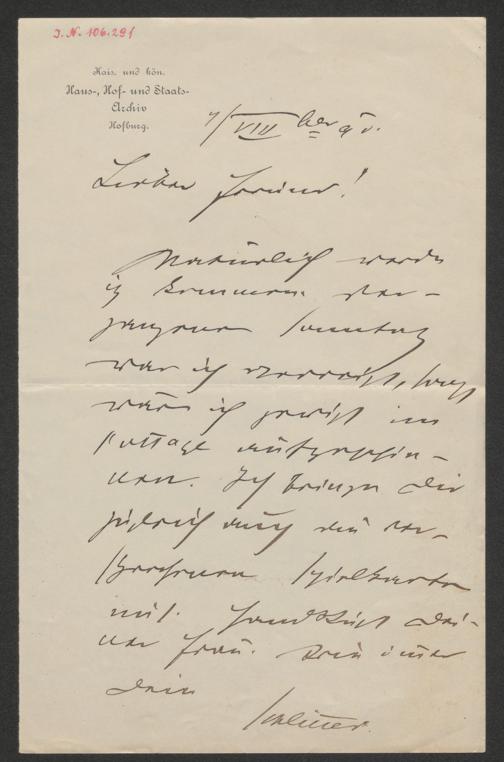 J. N. 106.291
Kais. und kön.
Haus-, Hof- und Staats-
Archiv
Hofburg.
7/VIII ber 9
Lieber Freund!
Natürlich werde
ich kommen. Ver-
gangenen Sonntag
war ich verreist, sonst
wäre ich gewiß im
Cottage aufgeschie-
nen. Ich bringe Dir
zugleich auch die ver-
sprochenen Spielkarten
mit. Handküsse Dei-
ner Frau. Dein immer
Dein
Schlitter.